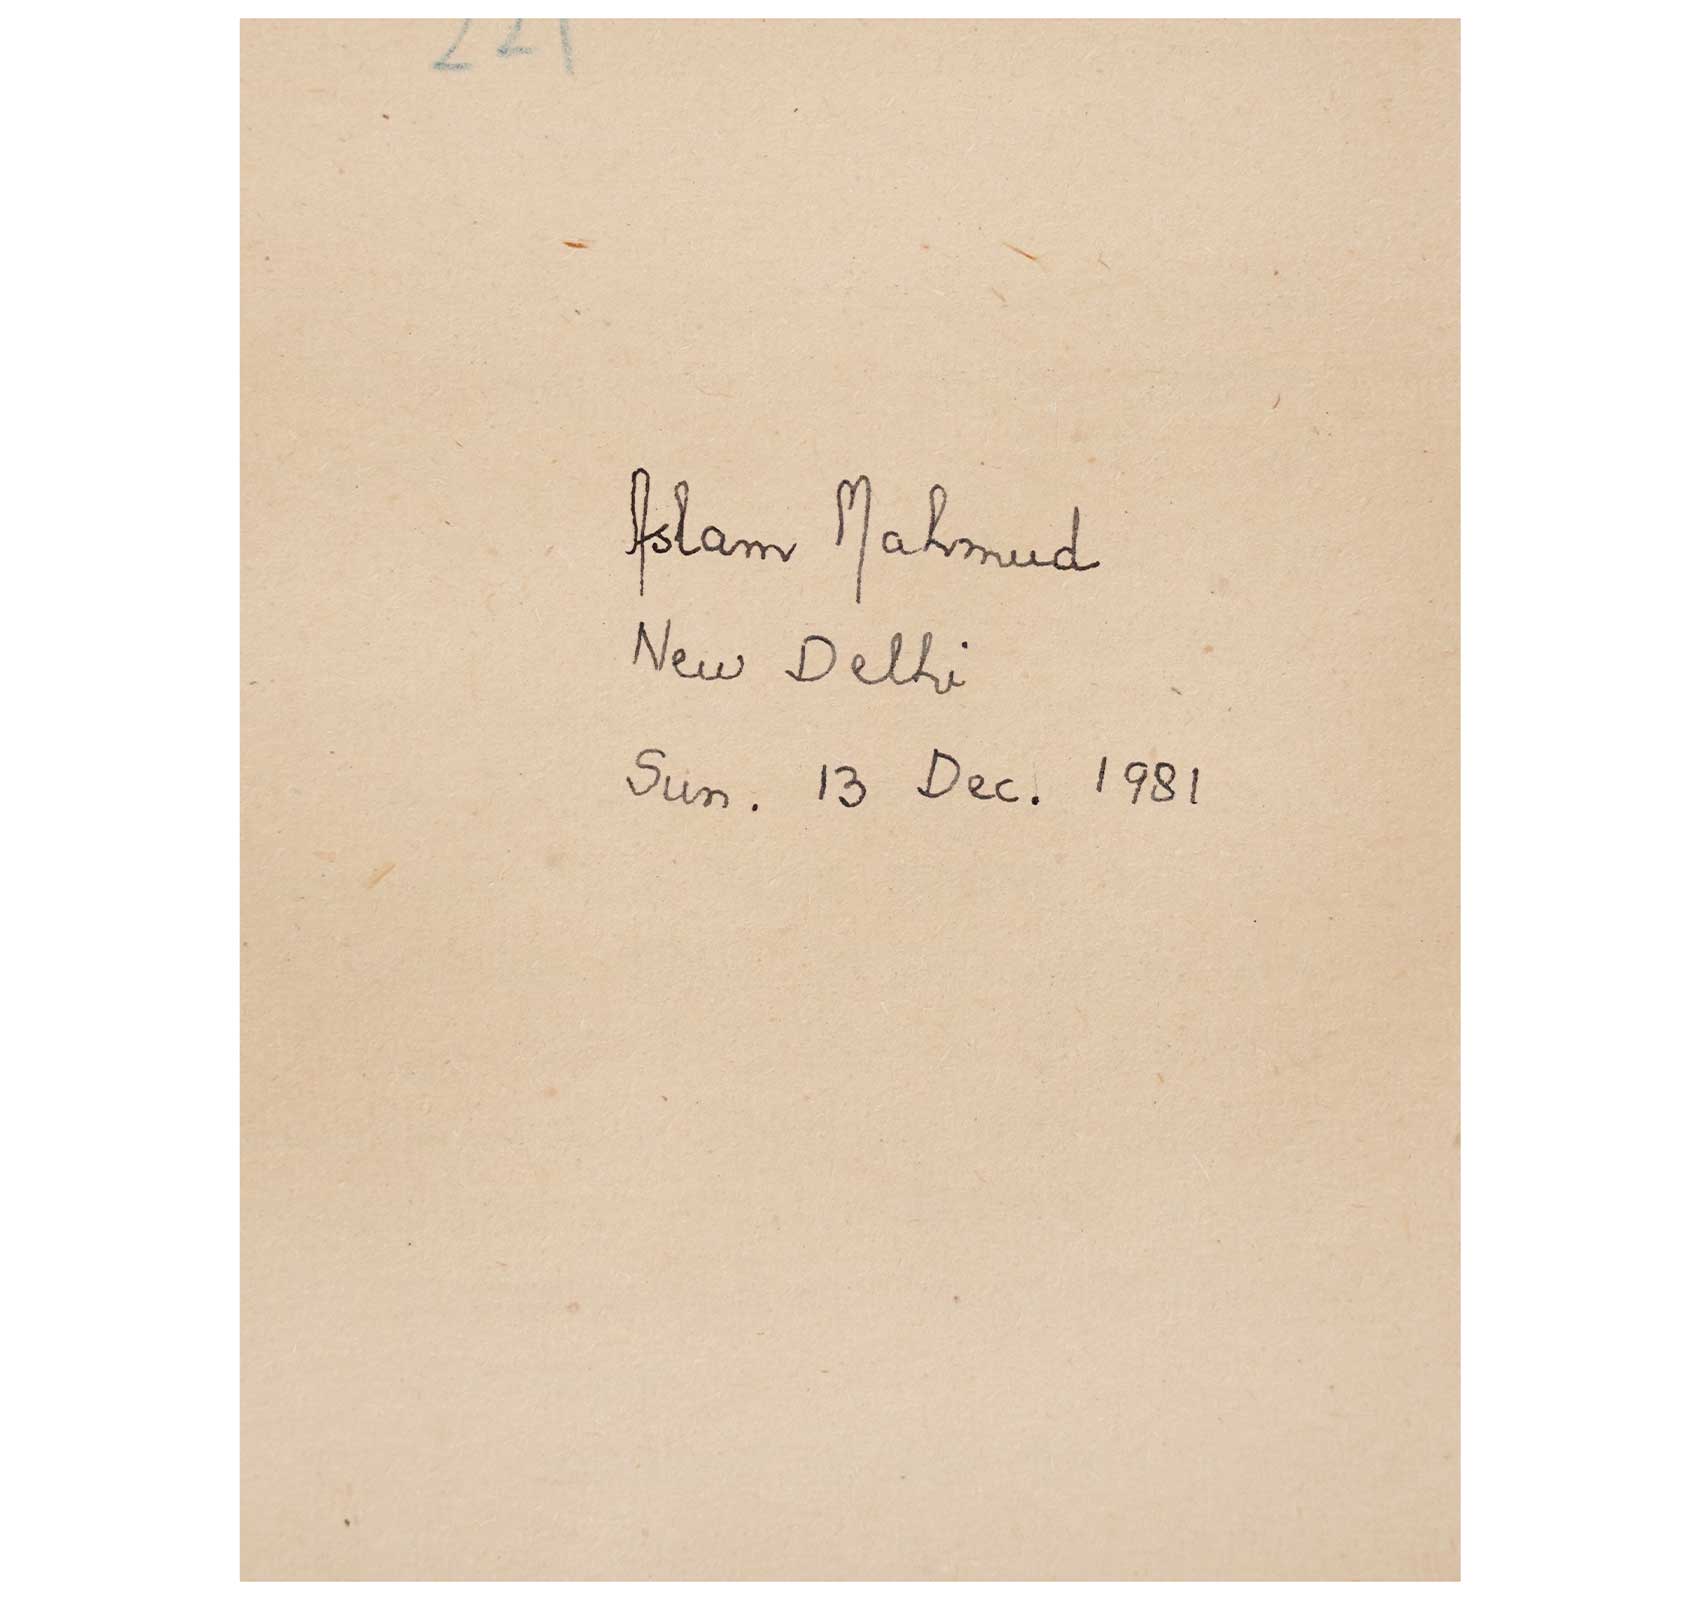 221
Aslam Mahmud
New Delhi
Sun. 13 Dec. 1981